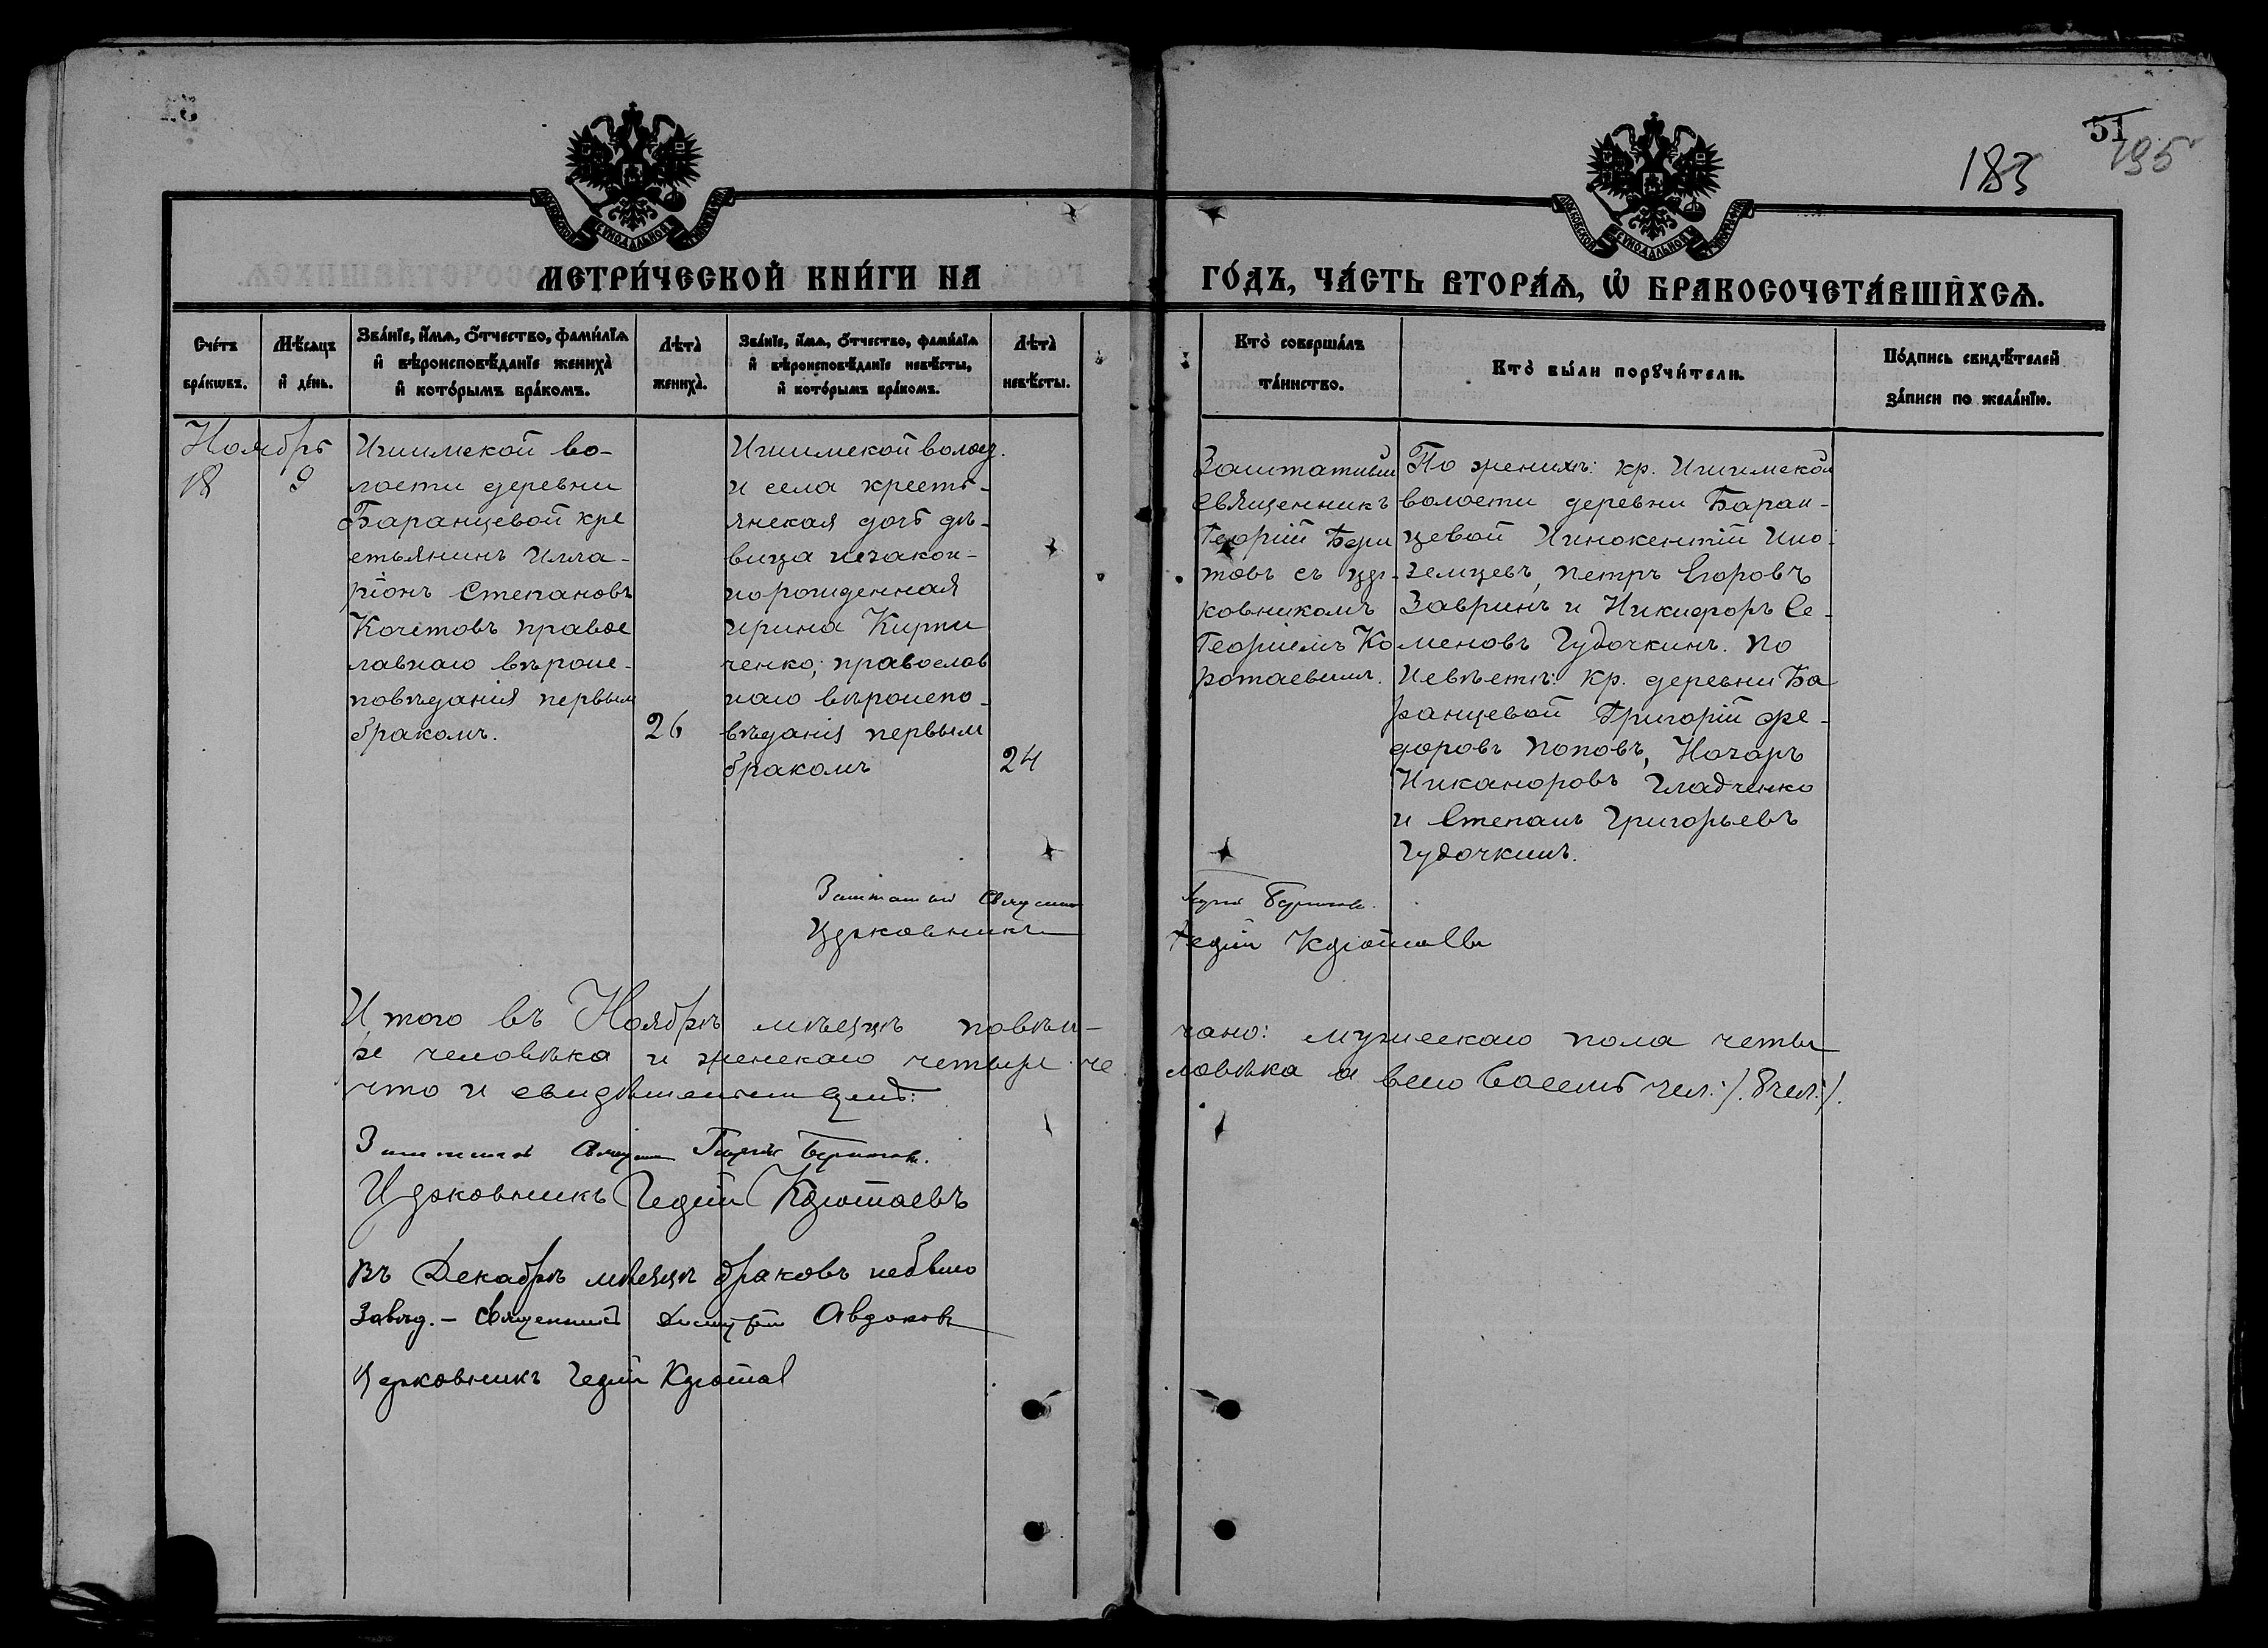 51
195
183
МОСКОВСКОЙ СѴНОДАЛЬНОЙ ТИПОГРАФІИ
МОСКОВСКОЙ СѴНОДАЛЬНОЙ ТИПОГРАФІИ
МЕТРИ́ЧЕСКОЙ КНИ́ГИ НА ГО́ДЪ, ЧА́СТЬ ВТОРА́Ѧ, Ѡ҆ БРАКОСОЧЕТА́ВШИХСѦ.
Сче́тъ бра́кѡвъ.
Мѣ́сѧцъ и҆ де́нь.
Зва́нїе, и҆́мѧ, ѻ҆́тчество, фами́лїѧ и҆ вѣроисповѣ́данїе жениха̀ и҆ кото́рымъ бра́комъ.
Лѣта̀ жениха̀.
Зва́нїе, и҆́мѧ, ѻ҆́тчество, фами́лїѧ и҆ вѣроисповѣ́данїе невѣ́сты, и҆ кото́рымъ бра́комъ.
Лѣта̀ невѣ́сты.
Кто̀ соверша́лъ та́инство.
Кто̀ бы́ли порꙋчи́тели.
По́дпись свидѣ́телей за́писи по жела́нїю.
Ноябрь
18 9
Игимской во-
лости деревни
Баранцевой кре
стьянинъ Илла-
ріонъ Степановъ
Кочетовъ правос
лавнаго вѣроис-
повѣданія первым
бракомъ.
26
Игимской волост.
и села кресть-
янская дочь дѣ-
вица незакон-
норожденная
Ирина Кирпи
ченко; православ
наго вѣроиспо-
вѣданія первым
бракомъ
24
Заштатный
Священникъ
Георгій Бери
товъ съ цер-
ковникомъ
Георгіемъ Ко
ротаевымъ.
По женихѣ: кр. Игимской
волости деревни Баран-
цевой Иннокентій Ино-
земцевъ, Петръ Егоровъ
Завринъ и Никифоръ Се-
меновъ Гудочкинъ. По
Невѣстѣ: кр. деревни Ба
ранцевой Григорій Фе-
доровъ Поповъ, Назаръ
Никаноровъ Гладченко
и Степанъ Григорьевъ
Гудочкинъ.
Заштатный Священник
Церковникъ
Итого въ Ноябрѣ мѣсяцѣ повѣн- чано: мужескаго пола четы
ре человѣка и женскаго четыре че ловѣка а всего восемь чел: /. 8 чел: /.
что и свидѣтельствуемъ:
Заштатный Священник Георгій Беритовъ.
Церковникъ Георгій Коротаевъ
Въ Декабрѣ мѣсяцѣ браковъ небыло
Завѣд. - Священникъ Димитрій Авдоковъ
Церковникъ Георгій Коротаев